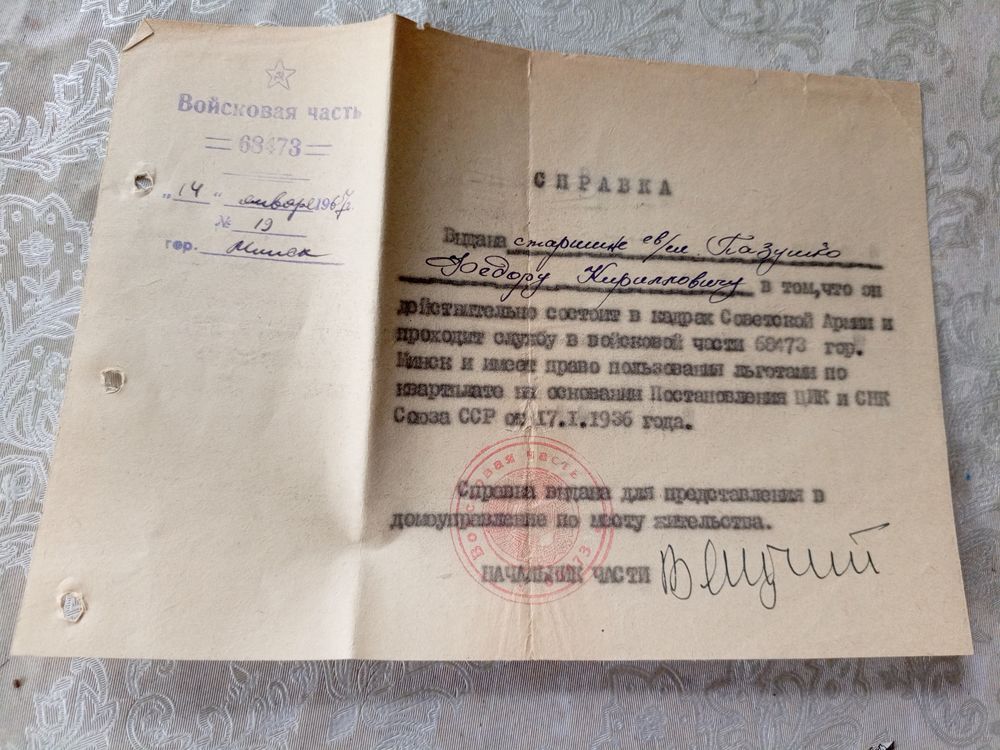 Войсковая часть
=68473=
"14" января 1967г.
№ 19
гор. Минск
СПРАВКА
Выдана старшине св/сл. Пазушко
Федору Кирилловичу в том, что он
действительно состоит в кадрах Советской Армии и
проходит службу в войсковой части 68473 гор.
Минск и имеет право пользования льготами по
квартплате на основании Постановления ЦИК и СНК
Союза ССР от 17.I.1936 года.
Справка выдана для представления в
домоуправление по месту жительства.
НАЧАЛЬНИК ЧАСТИ
Войсковая часть